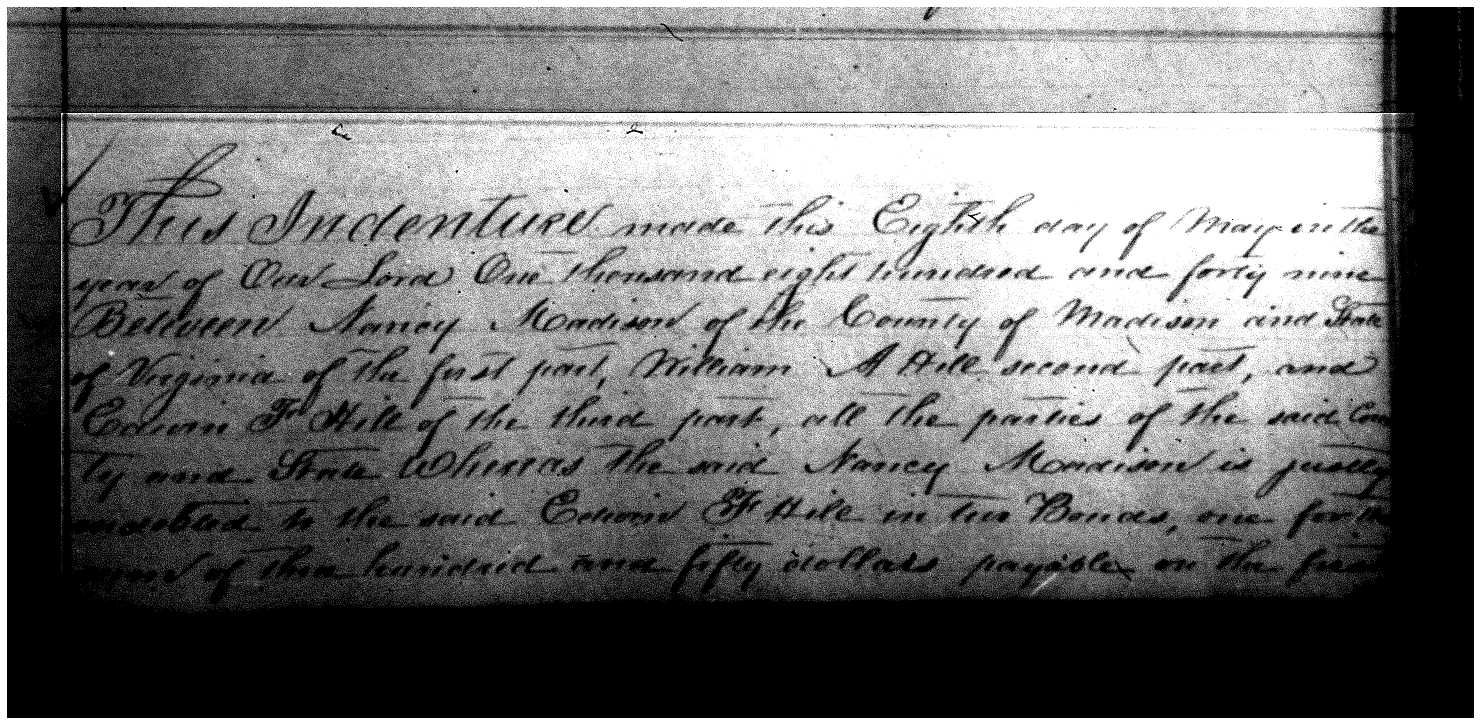 This Indenture made this Eighth day of May in the
year of Our Lord One thousand eight hundred and forty nine
Between Nancy Madison of the County of Madison and State
of Virginia of the first part, William A Hill second part, and
Edwin F Hill of the third part, all the parties of the said Coun
ty and State Whereas the said Nancy Madison is justly
indebted to the said Edwin F Hill in two Bonds, one for the
sum of three hundred and fifty dollars payable on the first